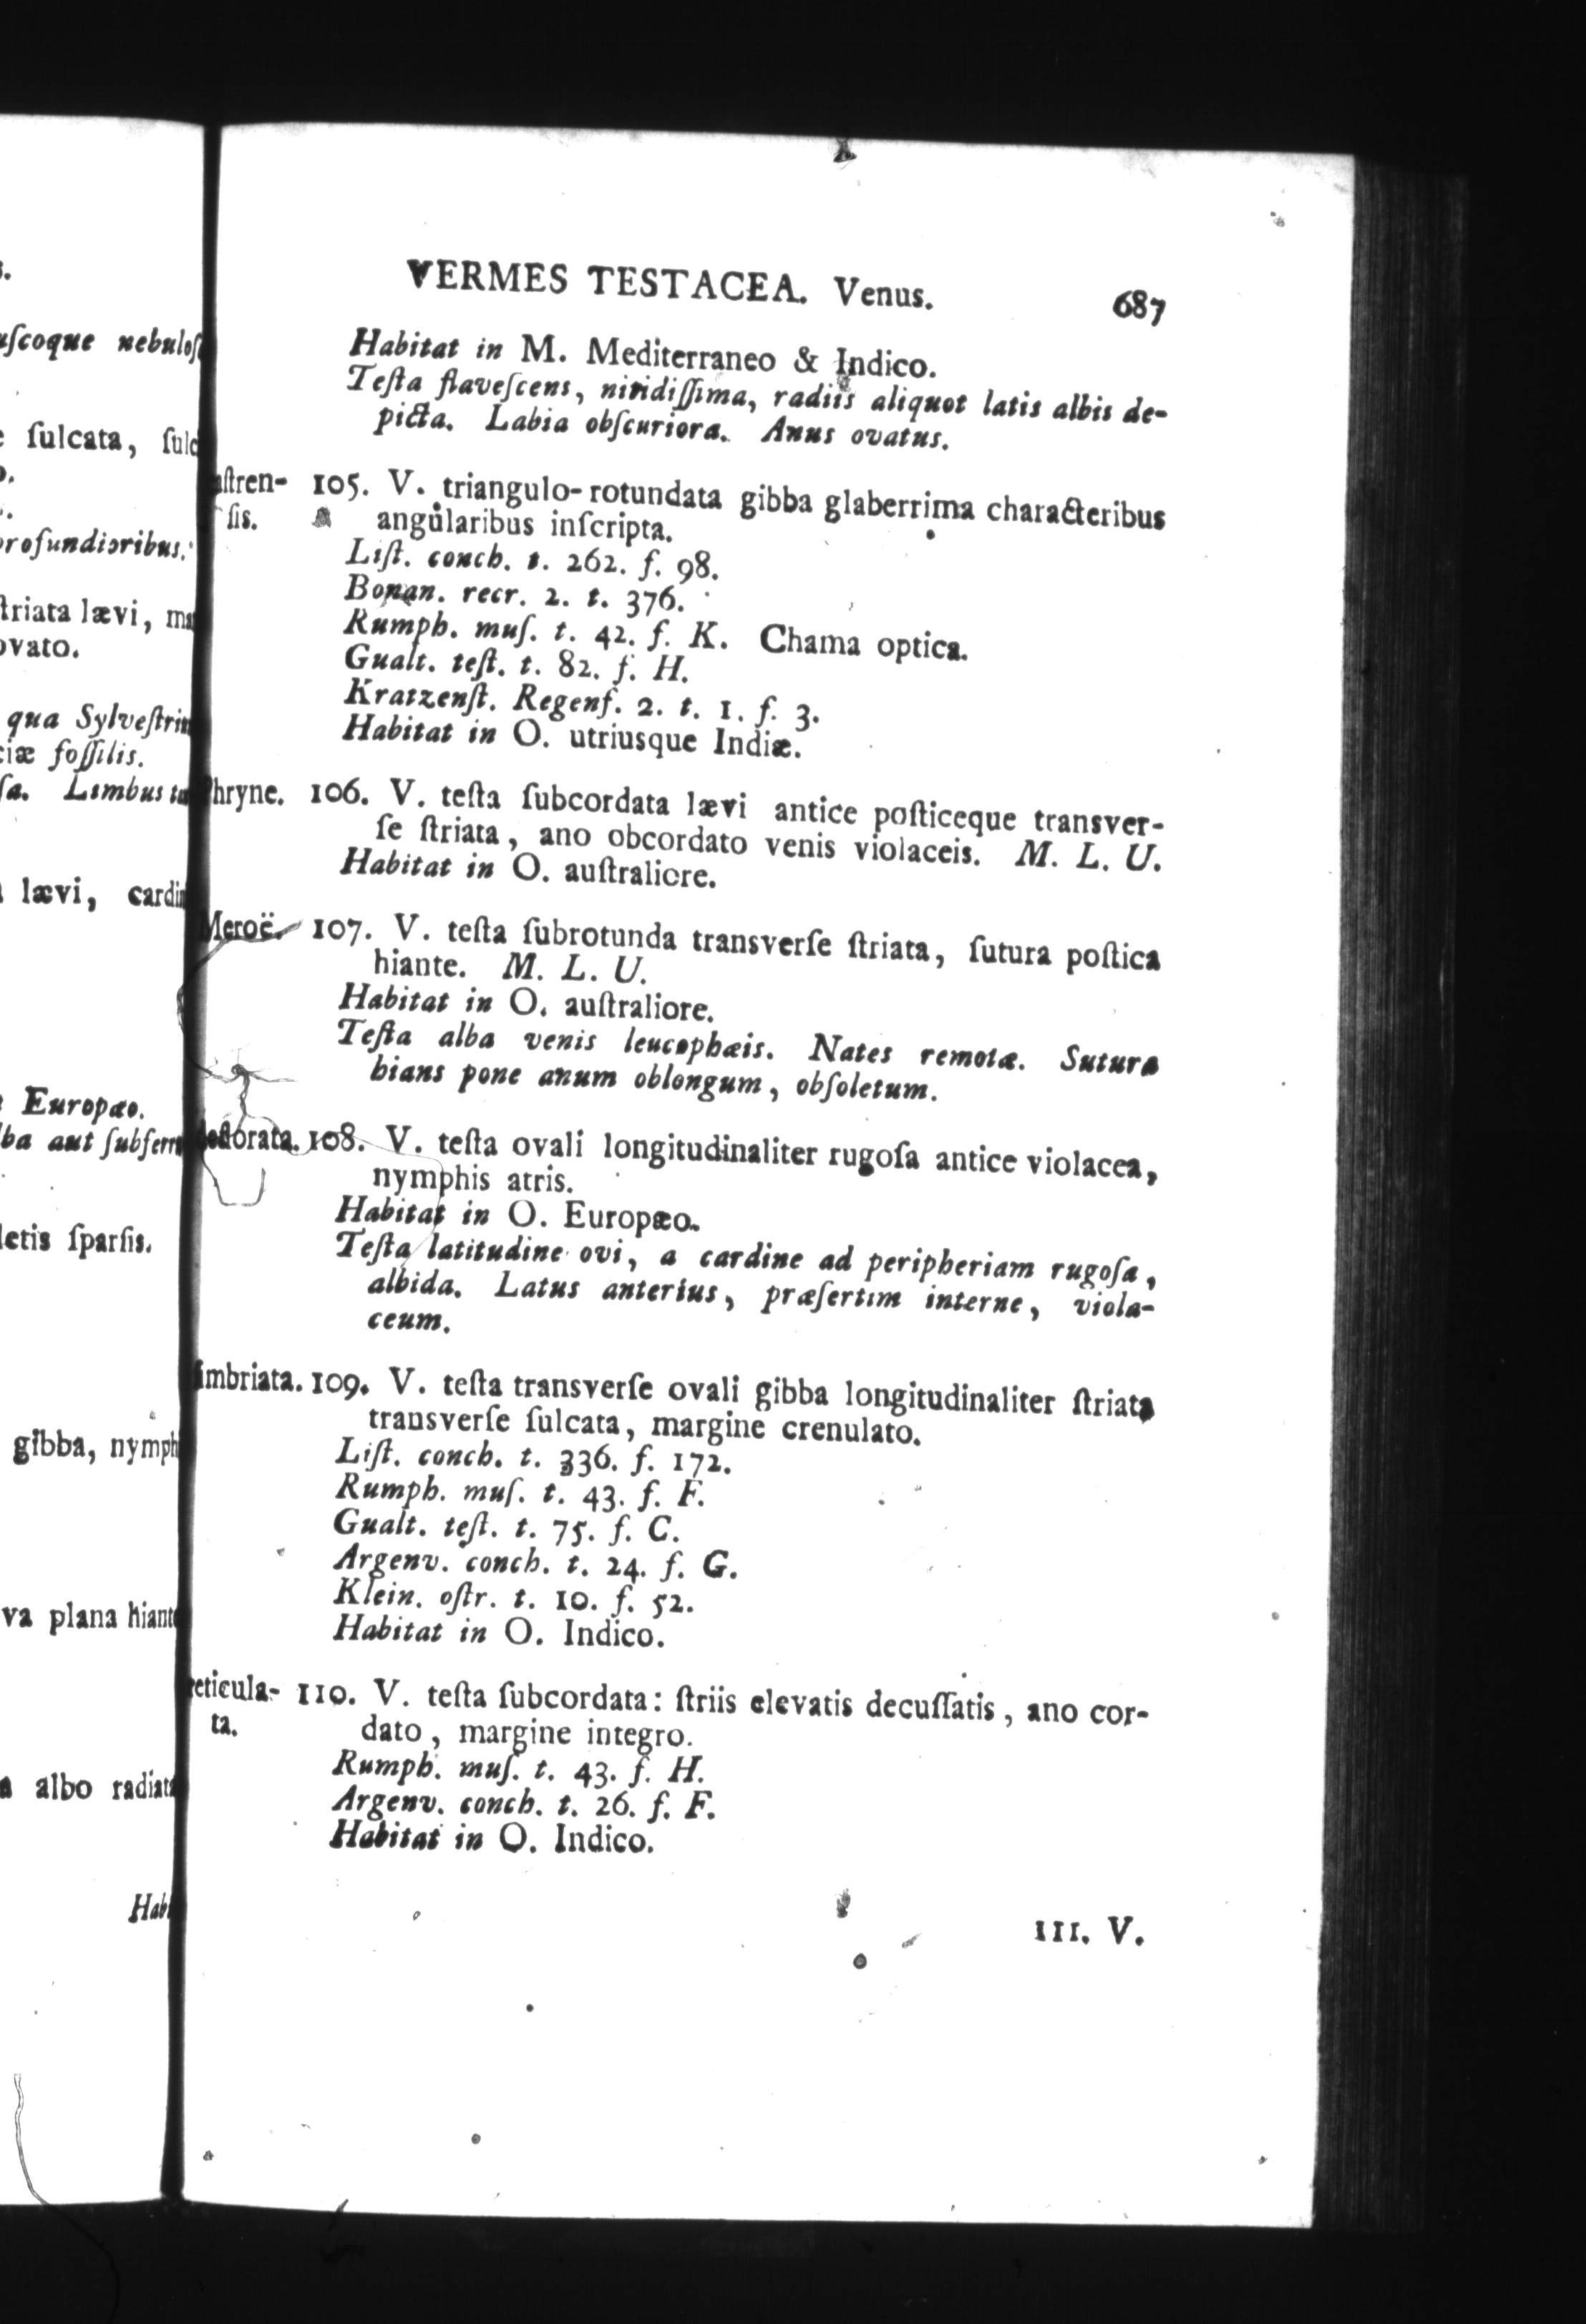 s.
uſcoque nebuloſ
e ſulcata, ſulc
o.
profundioribus.
ſtriata lævi, ma
ovato.
qua Sylveſtrin
ciæ foſſilis.
ſa. Limbus
lævi, cardin
Europæo.
lba aut ſubferru
letis ſparſis.
gibba, nymph
va plana hiante
a albo radiata
Habi
VERMES TESTACEA. Venus. 687
Habitat in M. Mediterraneo & Indico.
Teſta flaveſcens, nitidiſſima, radiis aliquot latis albis de-
picta. Labia obſcuriora. Anus ovatus.
aſtren- 105. V. triangulo-rotundata gibba glaberrima characteribus
ſis. angularibus inſcripta.
Liſt. conch. t. 262. f. 98.
Bonan. recr. 2. t. 376.
Rumph. muſ. t. 42. f. K. Chama optica.
Gualt. teſt. t. 82. f. H.
Kratzenſt. Regenſ. 2. t. 1. f. 3.
Habitat in O. utriusque Indiæ.
Phryne. 106. V. teſta ſubcordata lævi antice poſticeque transver-
ſe ſtriata, ano obcordato venis violaceis. M. L. U.
Habitat in O. auſtraliore.
Meroë. 107. V. teſta ſubrotunda transverſe ſtriata, ſutura poſtica
hiante. M. L. U.
Habitat in O. auſtraliore.
Teſta alba venis leucophæis. Nates remotæ. Sutura
hians pone anum oblongum, obſoletum.
deflorata. 108. V. teſta ovali longitudinaliter rugoſa antice violacea,
nymphis atris.
Habitat in O. Europæo.
Teſta latitudine ovi, a cardine ad peripheriam rugoſa,
albida. Latus anterius, præſertim interne, viola-
ceum.
fimbriata. 109. V. teſta transverſe ovali gibba longitudinaliter ſtriata
transverſe ſulcata, margine crenulato.
Liſt. conch. t. 336. f. 172.
Rumph. muſ. t. 43. f. F.
Gualt. teſt. t. 75. f. C.
Argenv. conch. t. 24. f. G.
Klein. oſtr. t. 10. f. 52.
Habitat in O. Indico.
reticula- 110. V. teſta ſubcordata: ſtriis elevatis decuſſatis, ano cor-
ta. dato, margine integro.
Rumph. muſ. t. 43. f. H.
Argenv. conch. t. 26. f. F.
Habitat in O. Indico.
111. V.